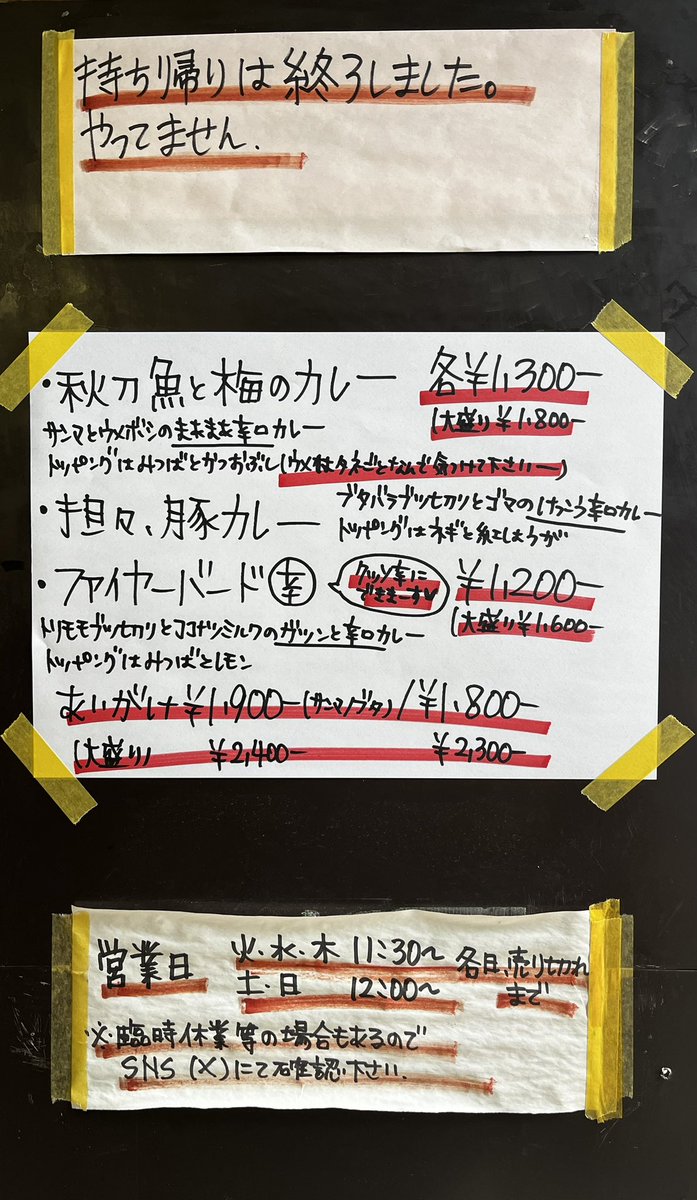 持ち帰りは終了しました。
やってません.
・秋刀魚と梅のカレー 各¥1,300-
(大盛り ¥1,800-
サンマとウメボシのまあまあ辛口カレー
トッピングはみつばとかつおぶし(ウメ村タネごとなんで気つけて下さいー)
・担々、豚カレー
ブタバラブツ切りとゴマのけっこう辛口カレー
トッピングはネギと紅しょうが
・ファイヤーバード 辛 クッソ辛に できまーす ¥1,200-
(大盛り¥1,600-
トリモモブツ切りとココナツミルクのガツンと辛口カレー
トッピングはみつばとレモン
あいがけ ¥1,900-(サンマ/ブタ) / ¥1,800-
(大盛り) ¥2,400- ¥2,300-
営業日 火・水・木 11:30〜 各日、売り切れ
土・日 12:00〜 まで
※臨時休業等の場合もあるので
SNS(X)にて確認下さい.